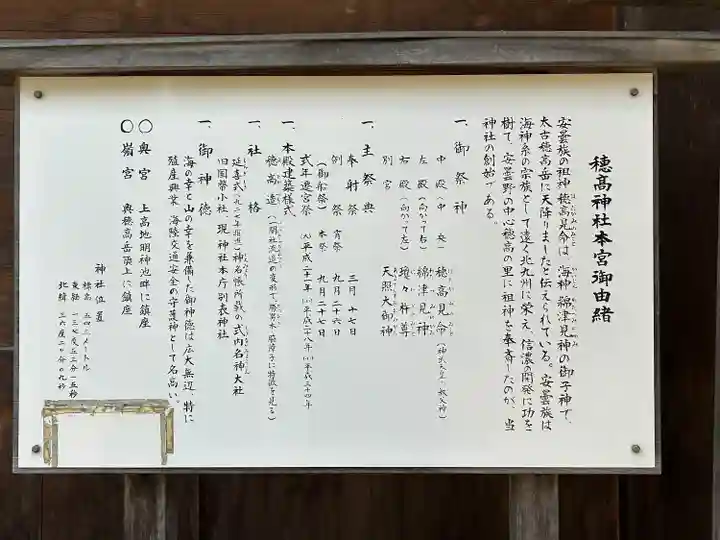 穂高神社本宮御由緒
安曇族の祖神穂高見命は、海神綿津見神の御子神で、
太古穂高岳に天降りましたと伝えられている。安曇族は
海神系の宗族として遠く北九州に栄え、信濃の開発に功を
樹て、安曇野の中心穂高の里に祖神を奉斎したのが、当
神社の創始である。
一、御祭神
中殿(中央) 穂高見命(神武天皇の叔父神)
左殿(向かって右) 綿津見神
右殿(向かって左) 瓊々杵尊
別宮 天照大御神
一、主祭典
奉射祭 三月十七日
例祭 宵祭 九月二十六日
(御船祭) 本祭 九月二十七日
式年遷宮祭 平成二十一年 平成二十八年 平成三十四年
一、本殿建築様式
穂高造(一間社流造の変形で、勝男木 脇障子に特徴を見る)
一、社格
延喜式(九二七年撰進)神名帳所載の式内名神大社
旧国幣小社 現神社本庁別表神社
一、御神徳
海の幸と山の幸を兼備した御神徳は広大無辺、特に
殖産興業、海陸交通安全の守護神として名高い。
〇奥宮 上高地明神池畔に鎮座
〇嶺宮 奥穂高岳頂上に鎮座
神社位置
標高 五四三メートル
東経 一三七度五三分一五秒
北緯 三六度二〇分〇九秒